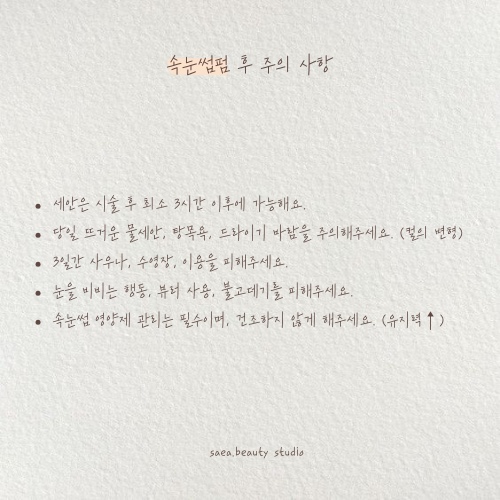 속눈썹펌 후 주의 사항
• 세안은 시술 후 최소 3시간 이후에 가능해요.
• 당일 뜨거운 물세안, 탕목욕, 드라이기 바람을 주의해주세요. (컬의 변형)
• 3일간 사우나, 수영장, 이용을 피해주세요.
• 눈을 비비는 행동, 뷰러 사용, 불고데기를 피해주세요.
• 속눈썹 영양제 관리는 필수이며, 건조하지 않게 해주세요. (유지력↑)
saea.beauty studio